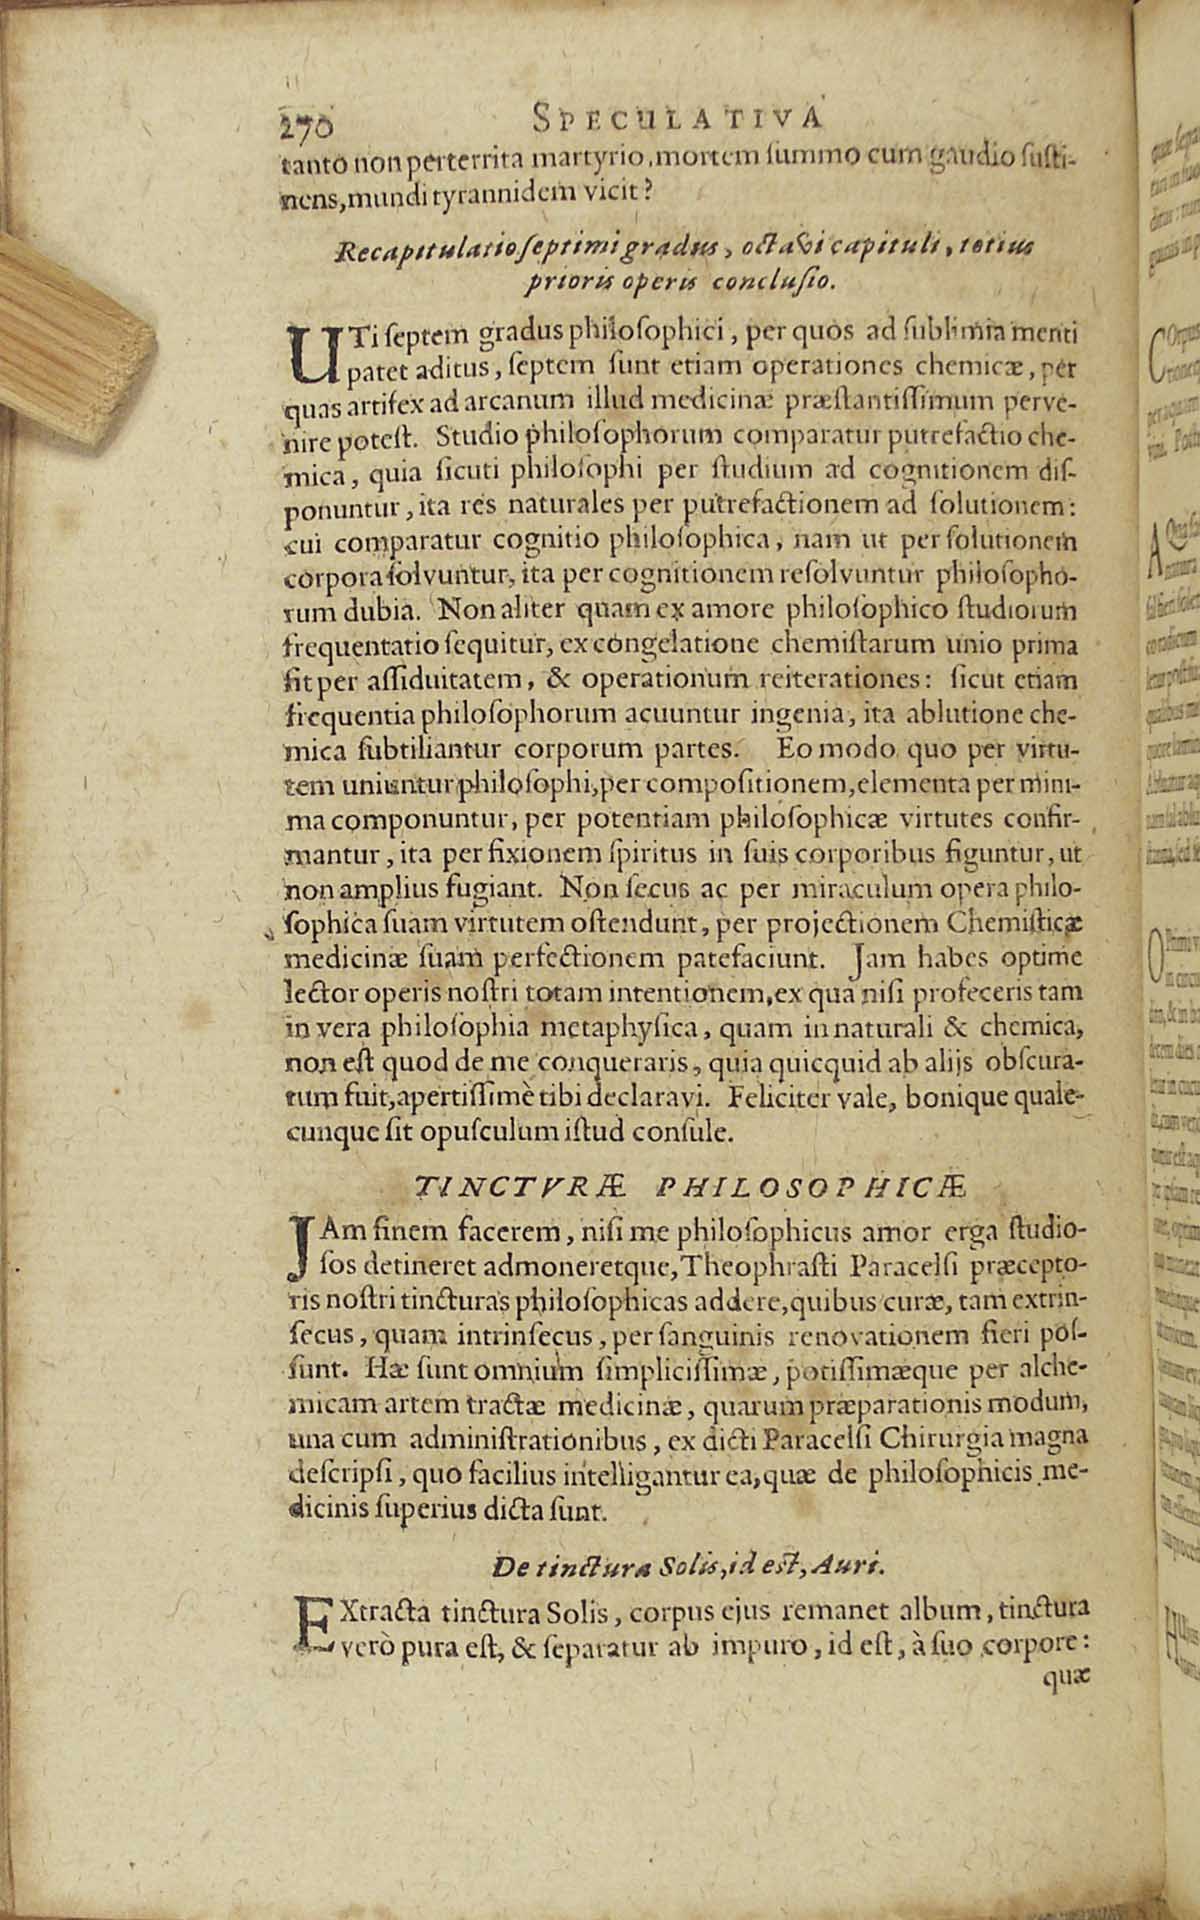 270 SPECULATIVA
tanto non perterrita martyrio, mortem ſummo cum gaudio ſuſti-
nens, mundi tyrannidem vicit?
Recapitulatio ſeptimi gradus, octavi capituli, totius
prioris operis concluſio.
UTi ſeptem gradus philoſophici, per quos ad ſublimia menti
patet aditus, ſeptem ſunt etiam operationes chemicæ, per
quas artifex ad arcanum illud medicinæ præſtantiſſimum perve-
nire poteſt. Studio philoſophorum comparatur putrefactio che-
mica, quia ſicuti philoſophi per ſtudium ad cognitionem diſ-
ponuntur, ita res naturales per putrefactionem ad ſolutionem:
cui comparatur cognitio philoſophica, nam ut per ſolutionem
corpora ſolvuntur, ita per cognitionem reſolvuntur philoſopho-
rum dubia. Non aliter quam ex amore philoſophico ſtudiorum
frequentatio ſequitur, ex congelatione chemiſtarum unio prima
fit per aſſiduitatem, & operationum reiterationes: ſicut etiam
frequentia philoſophorum acuuntur ingenia, ita ablutione che-
mica ſubtiliantur corporum partes. Eo modo quo per virtu-
tem uniuntur philoſophi, per compoſitionem, elementa per mini-
ma componuntur, per potentiam philoſophicæ virtutes confir-
mantur, ita per fixionem ſpiritus in ſuis corporibus figuntur, ut
non amplius fugiant. Non ſecus ac per miraculum opera philo-
ſophica ſuam virtutem oſtendunt, per projectionem Chemiſticæ
medicinæ ſuam perfectionem patefaciunt. Jam habes optime
lector operis noſtri totam intentionem, ex qua niſi profeceris tam
in vera philoſophia metaphyſica, quam in naturali & chemica,
non eſt quod de me conqueraris, quia quicquid ab alijs obſcura-
tum fuit, apertiſſimè tibi declaravi. Feliciter vale, bonique quale-
cunque ſit opuſculum iſtud conſule.
TINCTVRÆ PHILOSOPHICÆ
JAm finem facerem, niſi me philoſophicus amor erga ſtudio-
ſos detineret admoneretque, Theophraſti Paracelſi præcepto-
ris noſtri tincturas philoſophicas addere, quibus curæ, tam extrin-
ſecus, quam intrinſecus, per ſanguinis renovationem fieri poſ-
ſunt. Hæ ſunt omnium ſimpliciſſimæ, potiſſimæque per alche-
micam artem tractæ medicinæ, quarum præparationis modum,
una cum adminiſtrationibus, ex dicti Paracelſi Chirurgia magna
deſcripſi, quo facilius intelligantur ea, quæ de philoſophicis me-
dicinis ſuperius dicta ſunt.
De tinctura Solis, id eſt, Auri.
EXtracta tinctura Solis, corpus ejus remanet album, tinctura
verò pura eſt, & ſeparatur ab impuro, id eſt, à ſuo corpore:
quæ